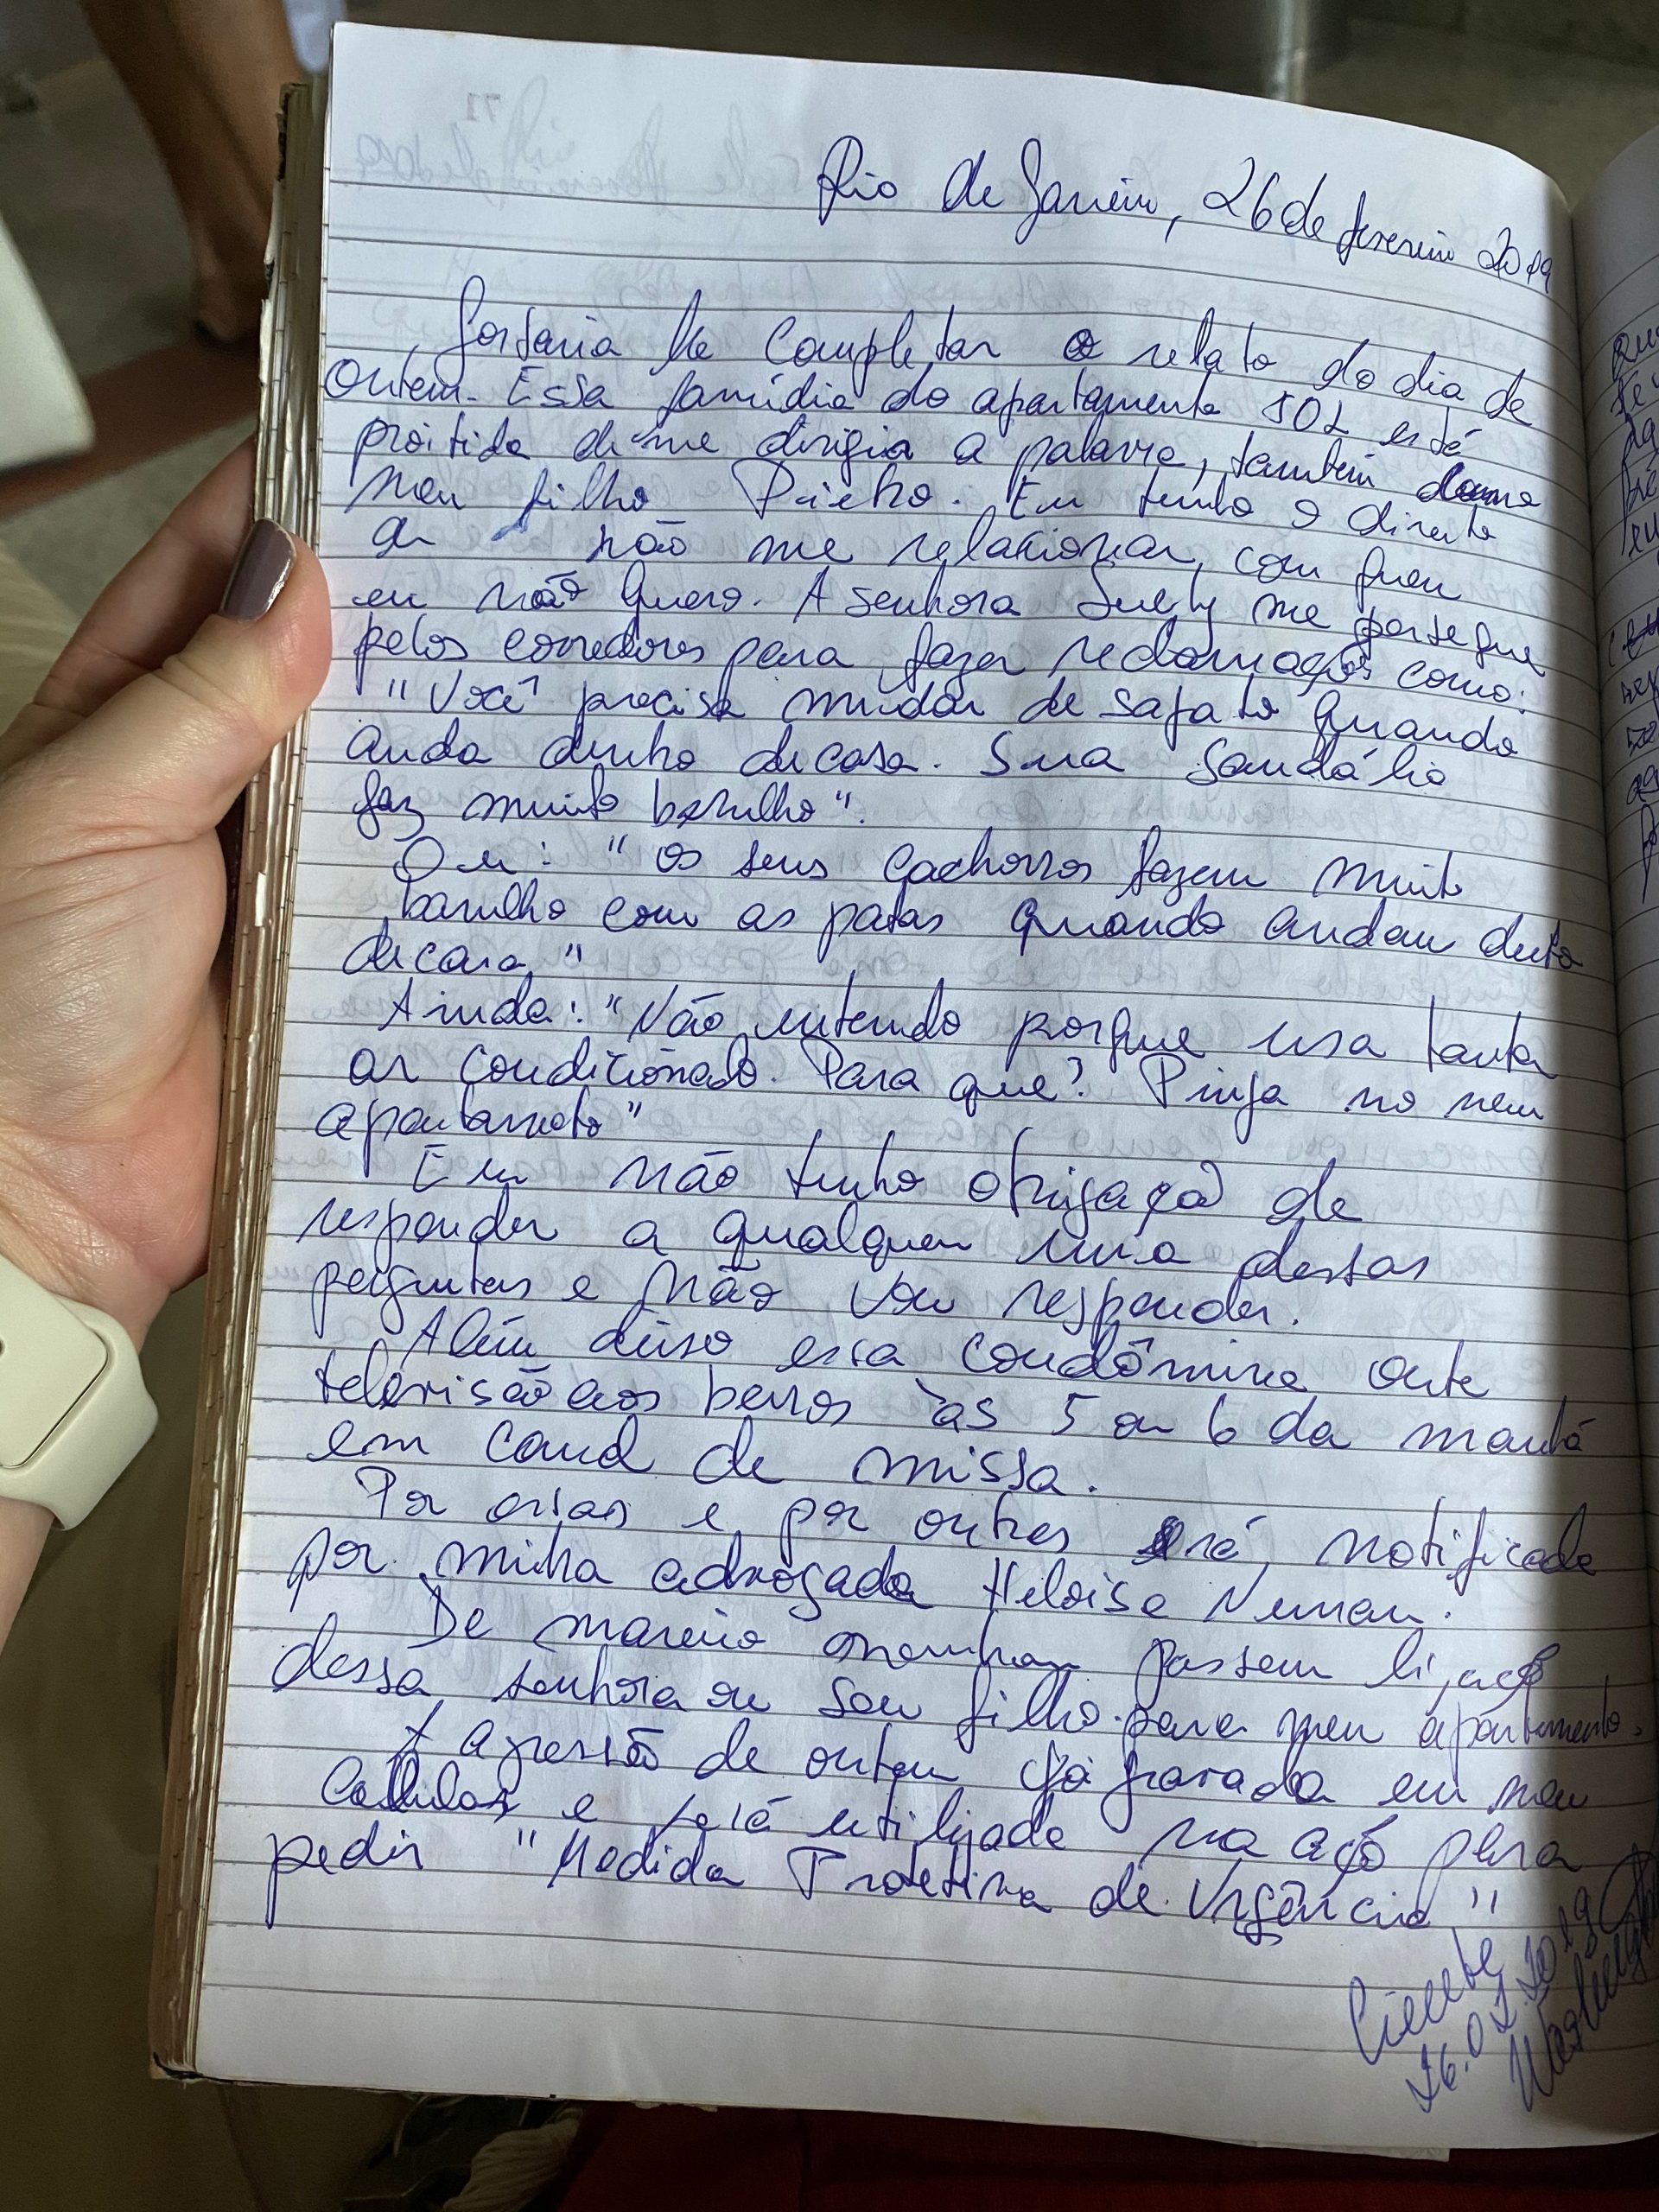 Rio de Janeiro, 26 de fevereiro 2019
Gostaria de completar o relato do dia de
ontem. Essa família do apartamento 502 está
proibida de me dirigir a palavra, também
meu filho Pietro. Eu tenho o direito
de não me relacionar com quem
eu não quero. A senhora Suely me persegue
pelos corredores para fazer reclamações como:
"Você precisa mudar de sapato quando
anda dentro de casa. Sua sandália
faz muito barulho".
Ou: "Os seus cachorros fazem muito
barulho com as patas quando andam dentro
de casa"
Ainda: "Não entendo porque usa tanto
ar condicionado. Para que? Pinga no meu
apartamento"
Eu não tenho obrigação de
responder a qualquer uma dessas
perguntas e não vou responder.
Além disso essa condômina ouve
televisão aos berros às 5 ou 6 da manhã
em canal de missa.
Por essas e por outras será notificada
por minha advogada Heloisa Neuman.
De maneira nenhuma passem ligação
dessa senhora ou seu filho para meu apartamento.
A agressão de ontem foi gravada em meu
celular e será utilizada na ação para
pedir "Medida Protetiva de Urgência"
Ciente
26.02.2019